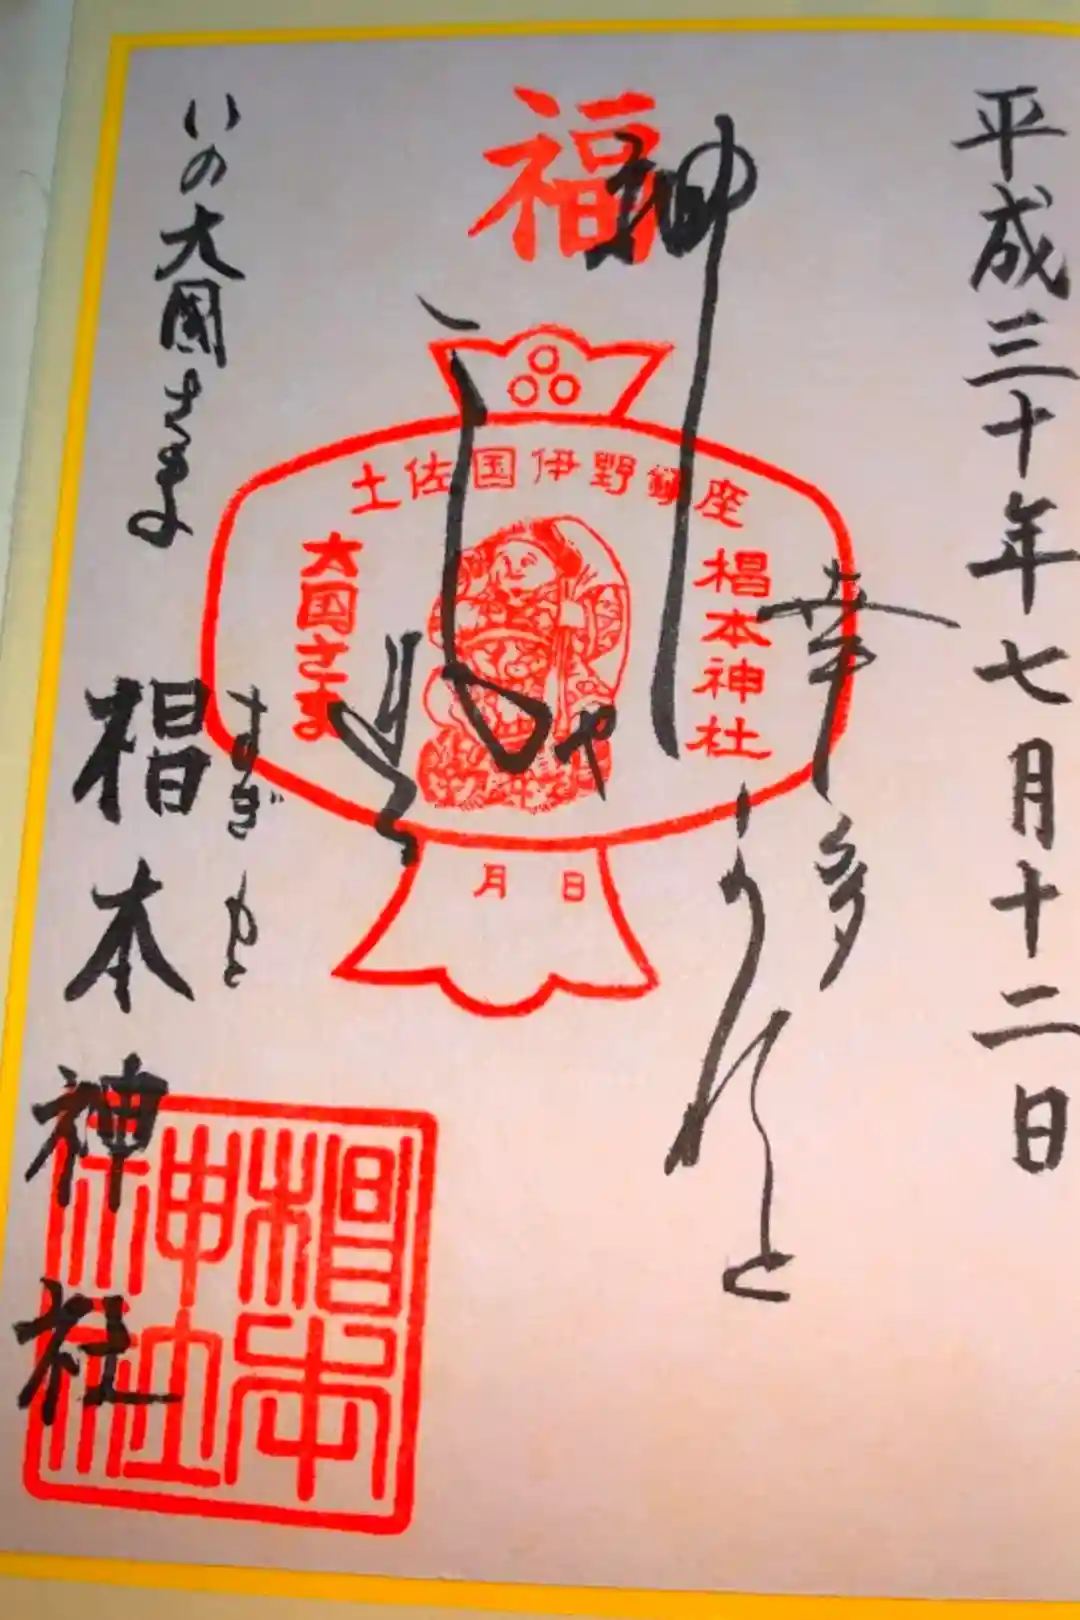 平成三十年七月十二日
福
神
幸多
かれと
土佐国伊野鎮座
椙本神社
大国さま
月 日
いの大國さま
すぎもと
椙本神社
椙本
神社